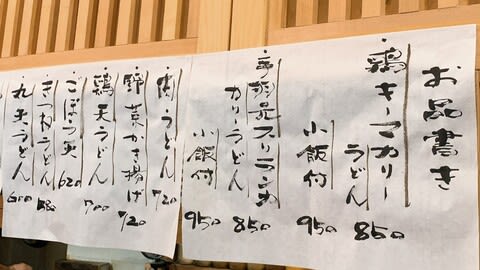 お品書き
・鶏キーマカリー
うどん 850
小飯付 950
・手羽元スリランカ
カリーうどん 850
小飯付 950
・肉うどん 720
・野菜かき揚げ 720
・鶏天うどん 700
・ごぼう天 620
・きつねうどん 580
・丸天うどん 600